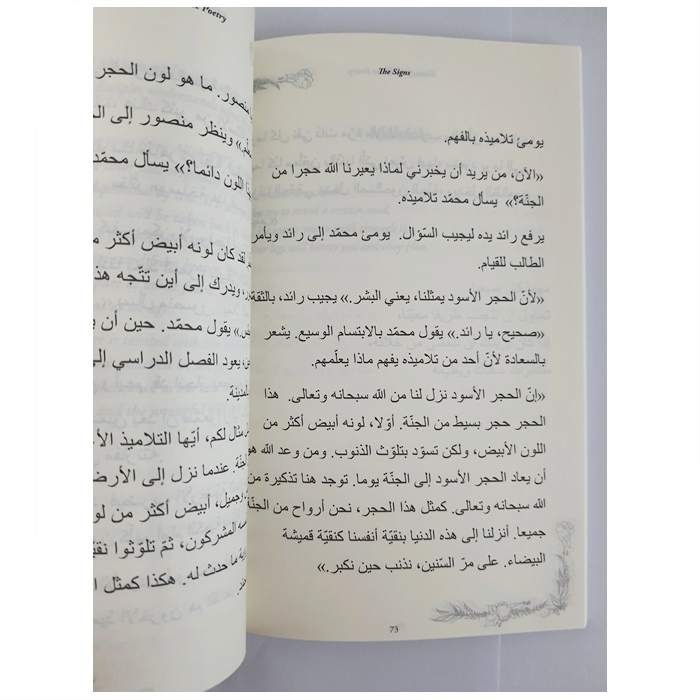 Poetry
منصور. ما هو لون الحجر
وينظر منصور إلى
اللون دائما؟» يسأل محمّد
لقد كان لونه أبيض أكثر
ويدرك إلى أين تتّجه
يقول محمّد. حين أن
يعود الفصل الدراسي
مثال لكم، أيّها التلاميذ
عندما نزل إلى
وجميل، أبيض أكثر من
المشركون، ثمّ تلوّثوا
ما حدث له. هكذا كمثل
The Signs
يومئ تلاميذه بالفهم.
«الآن، من يريد أن يخبرني لماذا يعيرنا الله حجرا من
الجنّة؟» يسأل محمّد تلاميذه.
يرفع رائد يده ليجيب السّؤال. يومئ محمّد إلى رائد ويأمر
الطالب للقيام.
«لأنّ الحجر الأسود يمثلنا، يعني البشر.» يجيب رائد، بالثقة
«صحيح، يا رائد.» يقول محمّد بالابتسام الوسيع. يشعر
بالسعادة لأنّ أحد من تلاميذه يفهم ماذا يعلّمهم.
«إنّ الحجر الأسود نزل لنا من الله سبحانه وتعالى. هذا
الحجر حجر بسيط من الجنّة. أوّلا، لونه أبيض أكثر من
اللون الأبيض، ولكن تسوّد بتلوّث الذنوب. ومن وعد الله هو
أن يعاد الحجر الأسود إلى الجنّة يوما. توجد هنا تذكيرة من
الله سبحانه وتعالى. كمثل هذا الحجر، نحن أرواح من الجنّة
جميعا. أنزلنا إلى هذه الدنيا بنقيّة أنفسنا كنقيّة قميشة
البيضاء. على مرّ السّنين، نذنب حين نكبر.»
73